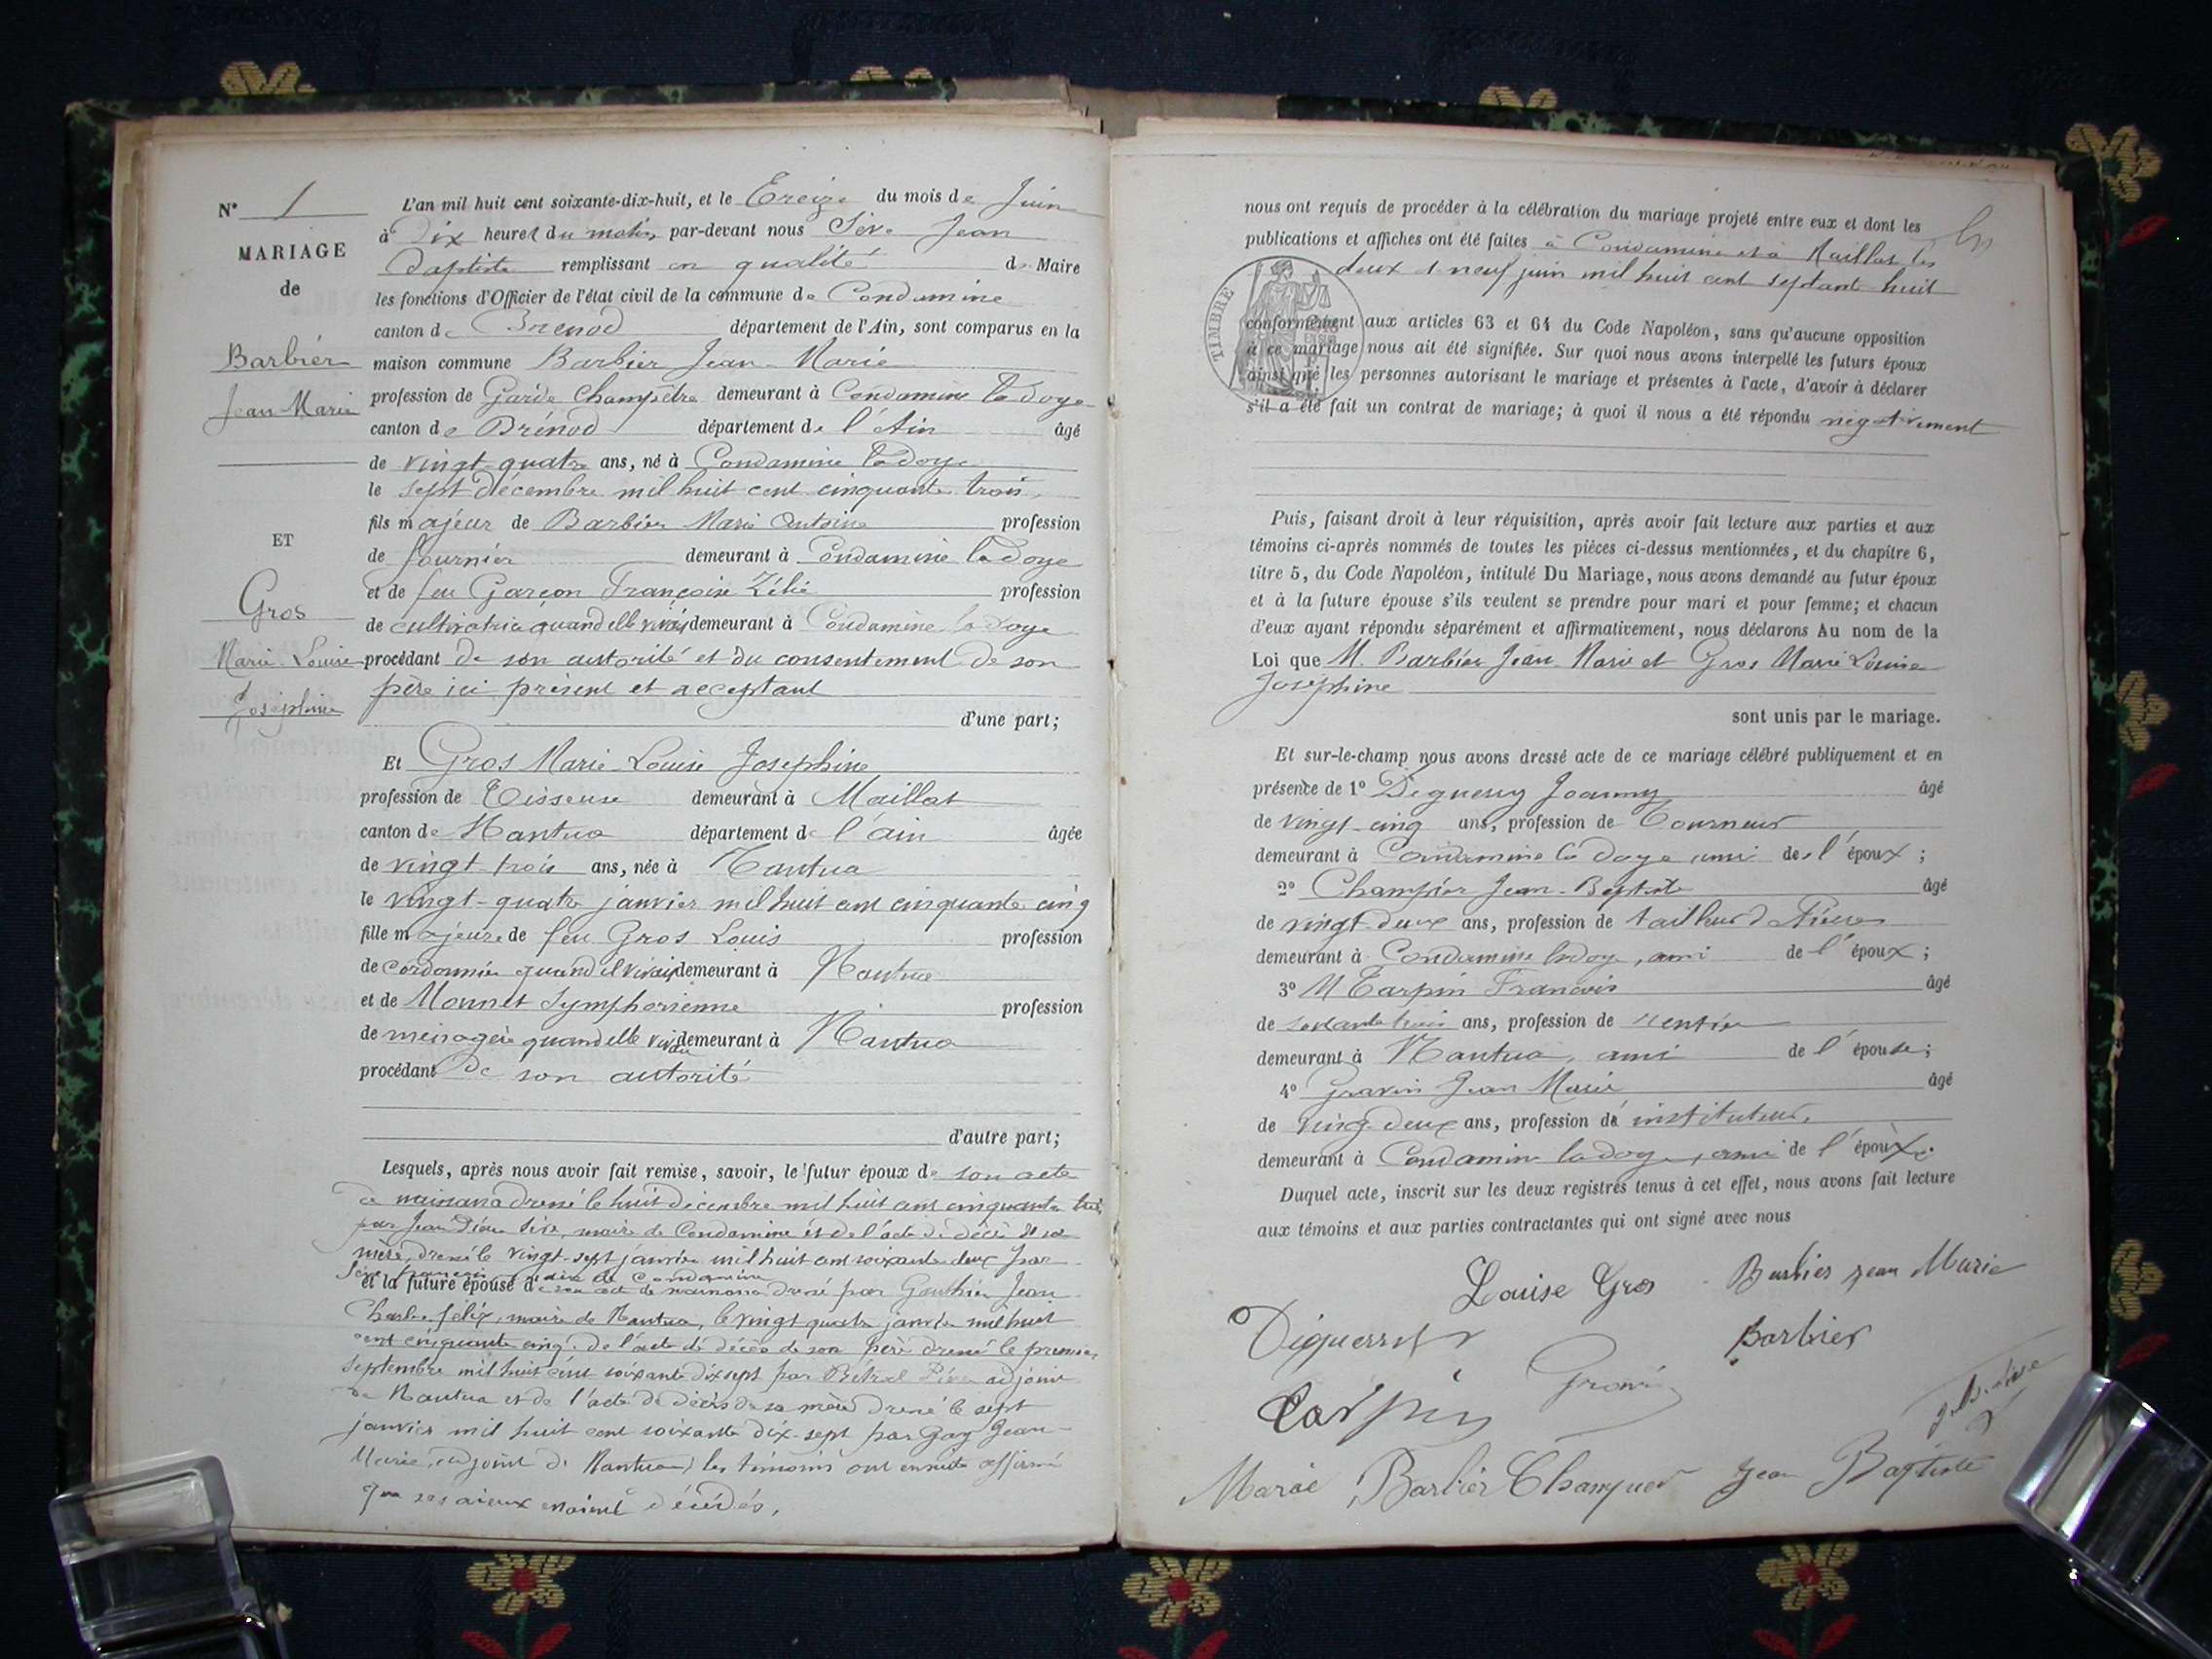 N° 1
MARIAGE
de
Barbier
Jean-Marie
ET
Gros
Marie-Louise
Joséphine
L'an mil huit cent soixante-dix-huit, et le Treize du mois de Juin
à Dix heures du matin, par-devant nous Sève Jean
Baptiste remplissant en qualité de Maire
les fonctions d'Officier de l'état civil de la commune de Condamine
canton de Brenod département de l'Ain, sont comparus en la
maison commune Barbier Jean-Marie
profession de Garde Champêtre demeurant à Condamine la Doye
canton de Brénod département de l'Ain âgé
de vingt-quatre ans, né à Condamine la Doye
le sept décembre mil huit cent cinquante trois,
fils majeur de Barbier Marie Antoine profession
de fournier demeurant à Condamine la Doye
et de feu Garçon Françoise Zélie profession
de cultivatrice quand elle vivait demeurant à Condamine la Doye
procédant de son autorité et du consentement de son
père ici présent et acceptant
d'une part;
Et Gros Marie-Louise Josephine
profession de Tisseuse demeurant à Maillat
canton de Nantua département de l'ain âgée
de vingt-trois ans, née à Nantua
le vingt-quatre janvier mil huit cent cinquante cinq
fille majeure de feu Gros Louis profession
de cordonnier quand il vivait demeurant à Nantua
et de Monnet Symphorienne profession
de ménagère quand elle vivait demeurant à Nantua
procédant de son autorité
d'autre part;
Lesquels, après nous avoir fait remise, savoir, le futur époux de son acte
de naissance dressé le huit décembre mil huit cent cinquante trois
par Jean Sève, maire de Condamine et de l'acte de décès de sa
mère, dressé le vingt-sept janvier mil huit cent soixante deux par
Sève François maire de Condamine
et la future épouse de son acte de naissance dressé par Gauthier Jean
Charles félix, maire de Nantua, le vingt quatre janvier mil huit
cent cinquante cinq. De l'acte de décès de son père dressé le premier
septembre mil huit cent soixante dix sept par adjoint
de Nantua et de l'acte de décès de sa mère dressé le sept
janvier mil huit cent soixante dix-sept par Gay Jean-
Marie, adjoint de Nantua, les témoins ont ensuite affirmé
que ses aïeux étaient décédés.
nous ont requis de procéder à la célébration du mariage projeté entre eux et dont les
publications et affiches ont été faites à Condamine et à Maillat les
deux et neuf juin mil huit cent septante huit
TIMBRE
conformément aux articles 63 et 64 du Code Napoléon, sans qu'aucune opposition
à ce mariage nous ait été signifiée. Sur quoi nous avons interpellé les futurs époux
ainsi que les personnes autorisant le mariage et présentes à l'acte, d'avoir à déclarer
s'il a été fait un contrat de mariage; à quoi il nous a été répondu négativement
Puis, faisant droit à leur réquisition, après avoir fait lecture aux parties et aux
témoins ci-après nommés de toutes les pièces ci-dessus mentionnées, et du chapitre 6,
titre 5, du Code Napoléon, intitulé Du Mariage, nous avons demandé au futur époux
et à la future épouse s'ils veulent se prendre pour mari et pour femme; et chacun
d'eux ayant répondu séparément et affirmativement, nous déclarons Au nom de la
Loi que M. Barbier Jean Marie et Gros Marie Louise
Joséphine
sont unis par le mariage.
Et sur-le-champ nous avons dressé acte de ce mariage célébré publiquement et en
présence de 1° Deguerry Joanny âgé
de vingt-cinq ans, profession de Tourneur
demeurant à Condamine la Doye ami de l'époux;
2° Champier Jean-Baptiste âgé
de vingt-deux ans, profession de tailleur de Pierres
demeurant à Condamine la doye, ami de l'époux;
3° M Carpin Francois âgé
de soixante trois ans, profession de rentier
demeurant à Nantua, ami de l'épouse;
4° Gravin Jean Marie âgé
de vingt deux ans, profession de instituteur,
demeurant à Condamine la doye, ami de l'époux.
Duquel acte, inscrit sur les deux registres tenus à cet effet, nous avons fait lecture
aux témoins et aux parties contractantes qui ont signé avec nous
Louise Gros Barbier jean Marie
Barbier
Carpin
Marie Barbier Champier Jean Baptiste